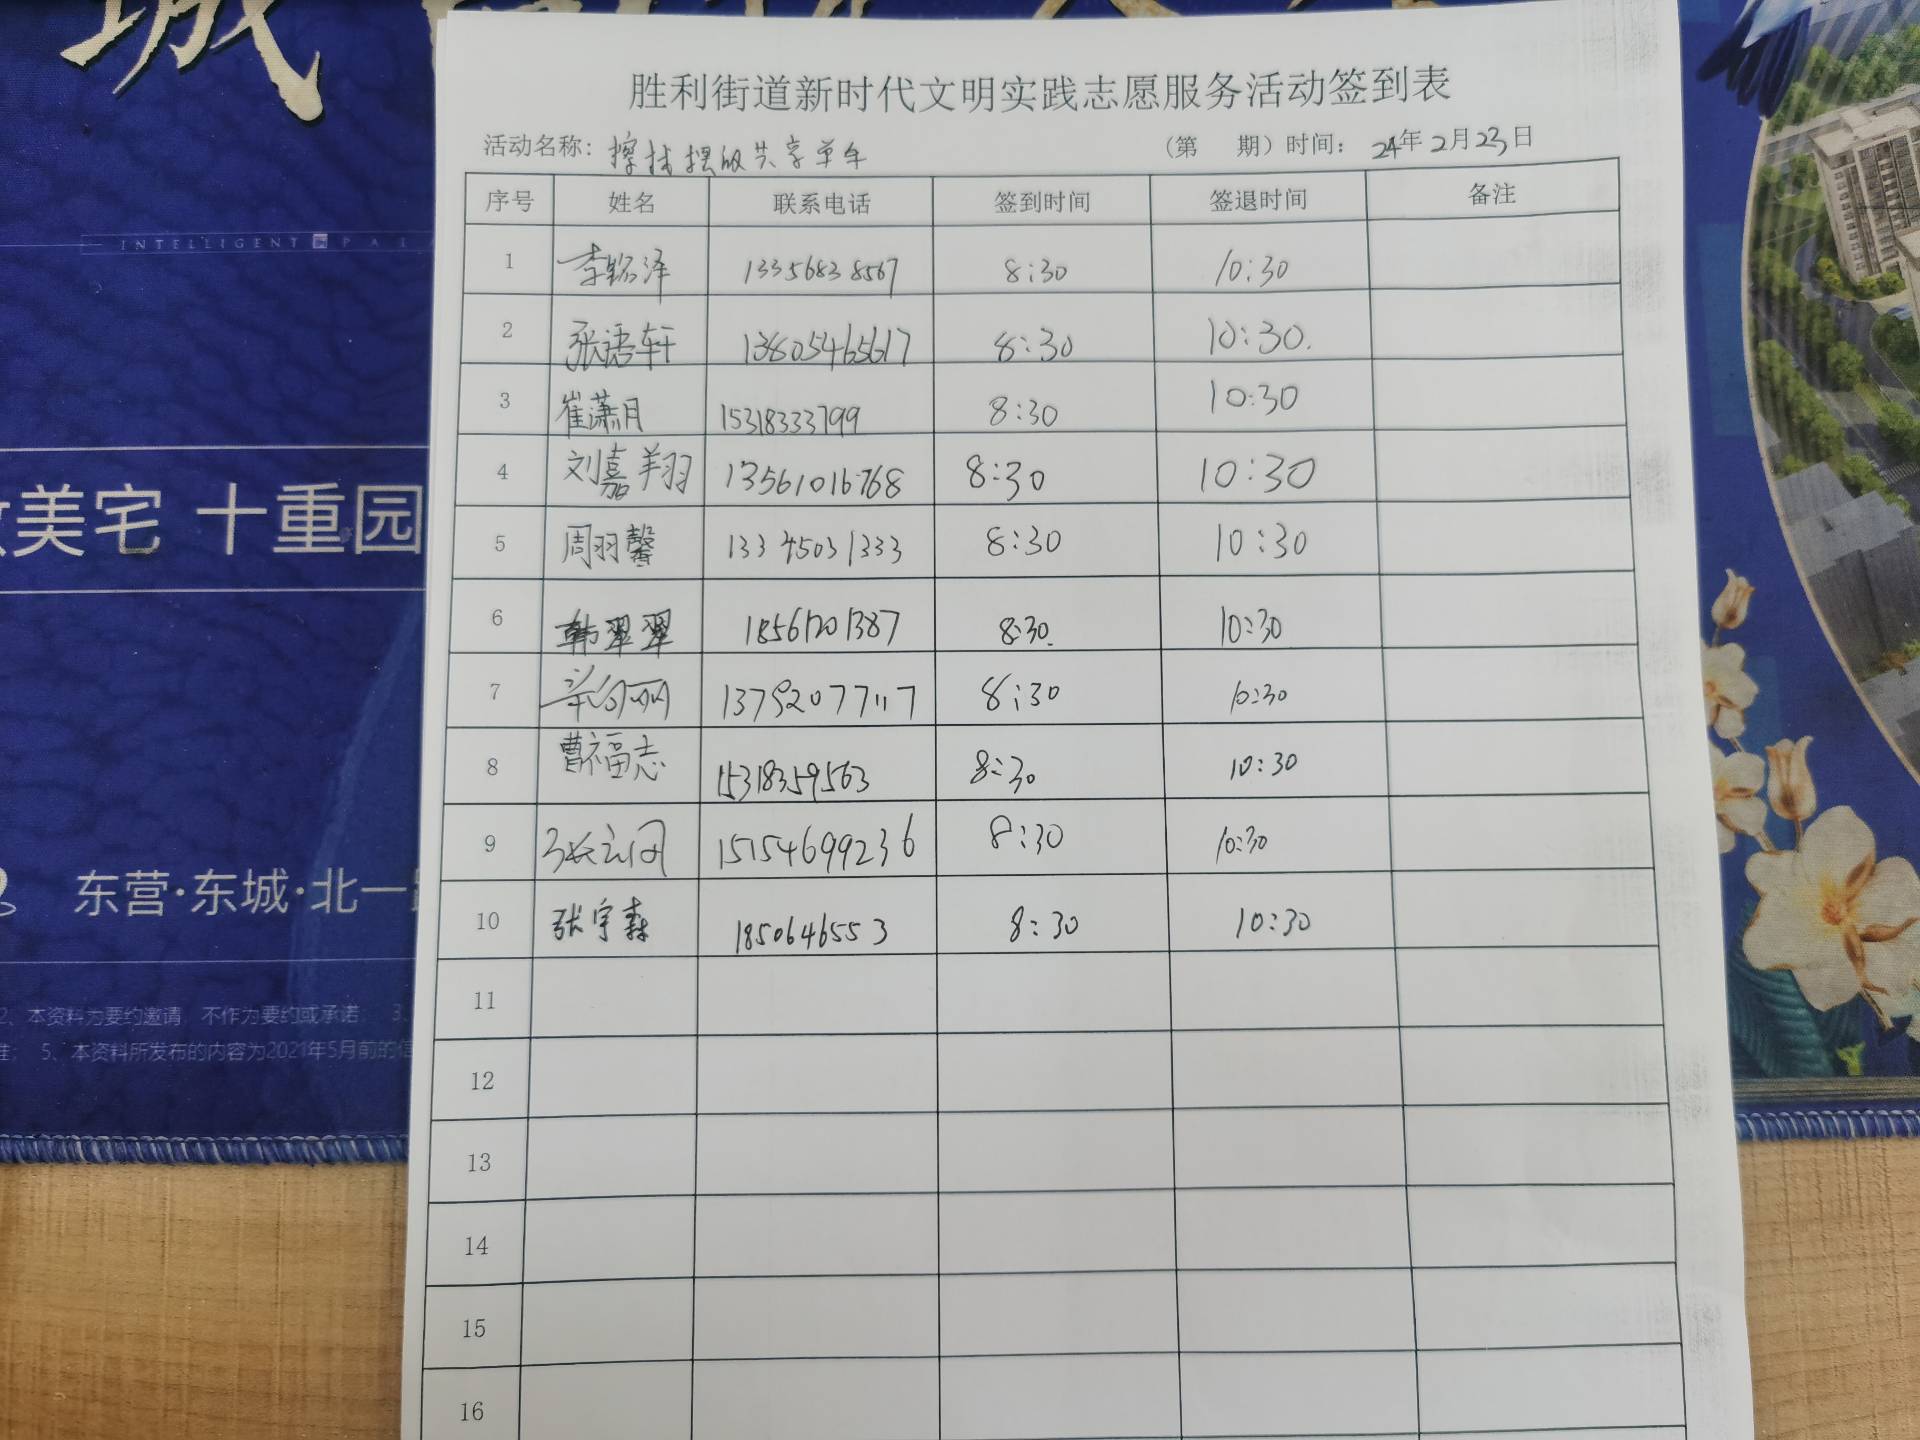 城
INTELLIGENT
美宅 十重园
东营·东城·北一
2、本资料为要约邀请，不作为要约或承诺； 3、
5、本资料所发布的内容为2021年5月前的信
胜利街道新时代文明实践志愿服务活动签到表
活动名称：擦拭摆放共享单车 （第 期）时间： 24年2月23日
序号 姓名 联系电话 签到时间 签退时间 备注
1 李铭泽 13356838567 8:30 10:30
2 张语轩 13805465617 8:30 10:30.
3 崔潇月 15318333799 8:30 10:30
4 刘嘉翔 13561016768 8:30 10:30
5 周羽馨 13345031333 8:30 10:30
6 韩翠翠 18561201387 8:30 10:30
7 13792077117 8:30 10:30
8 曹福志 15318359563 8:30 10:30
9 15154699236 8:30 10:30
10 张宇森 1850646553 8:30 10:30
11
12
13
14
15
16